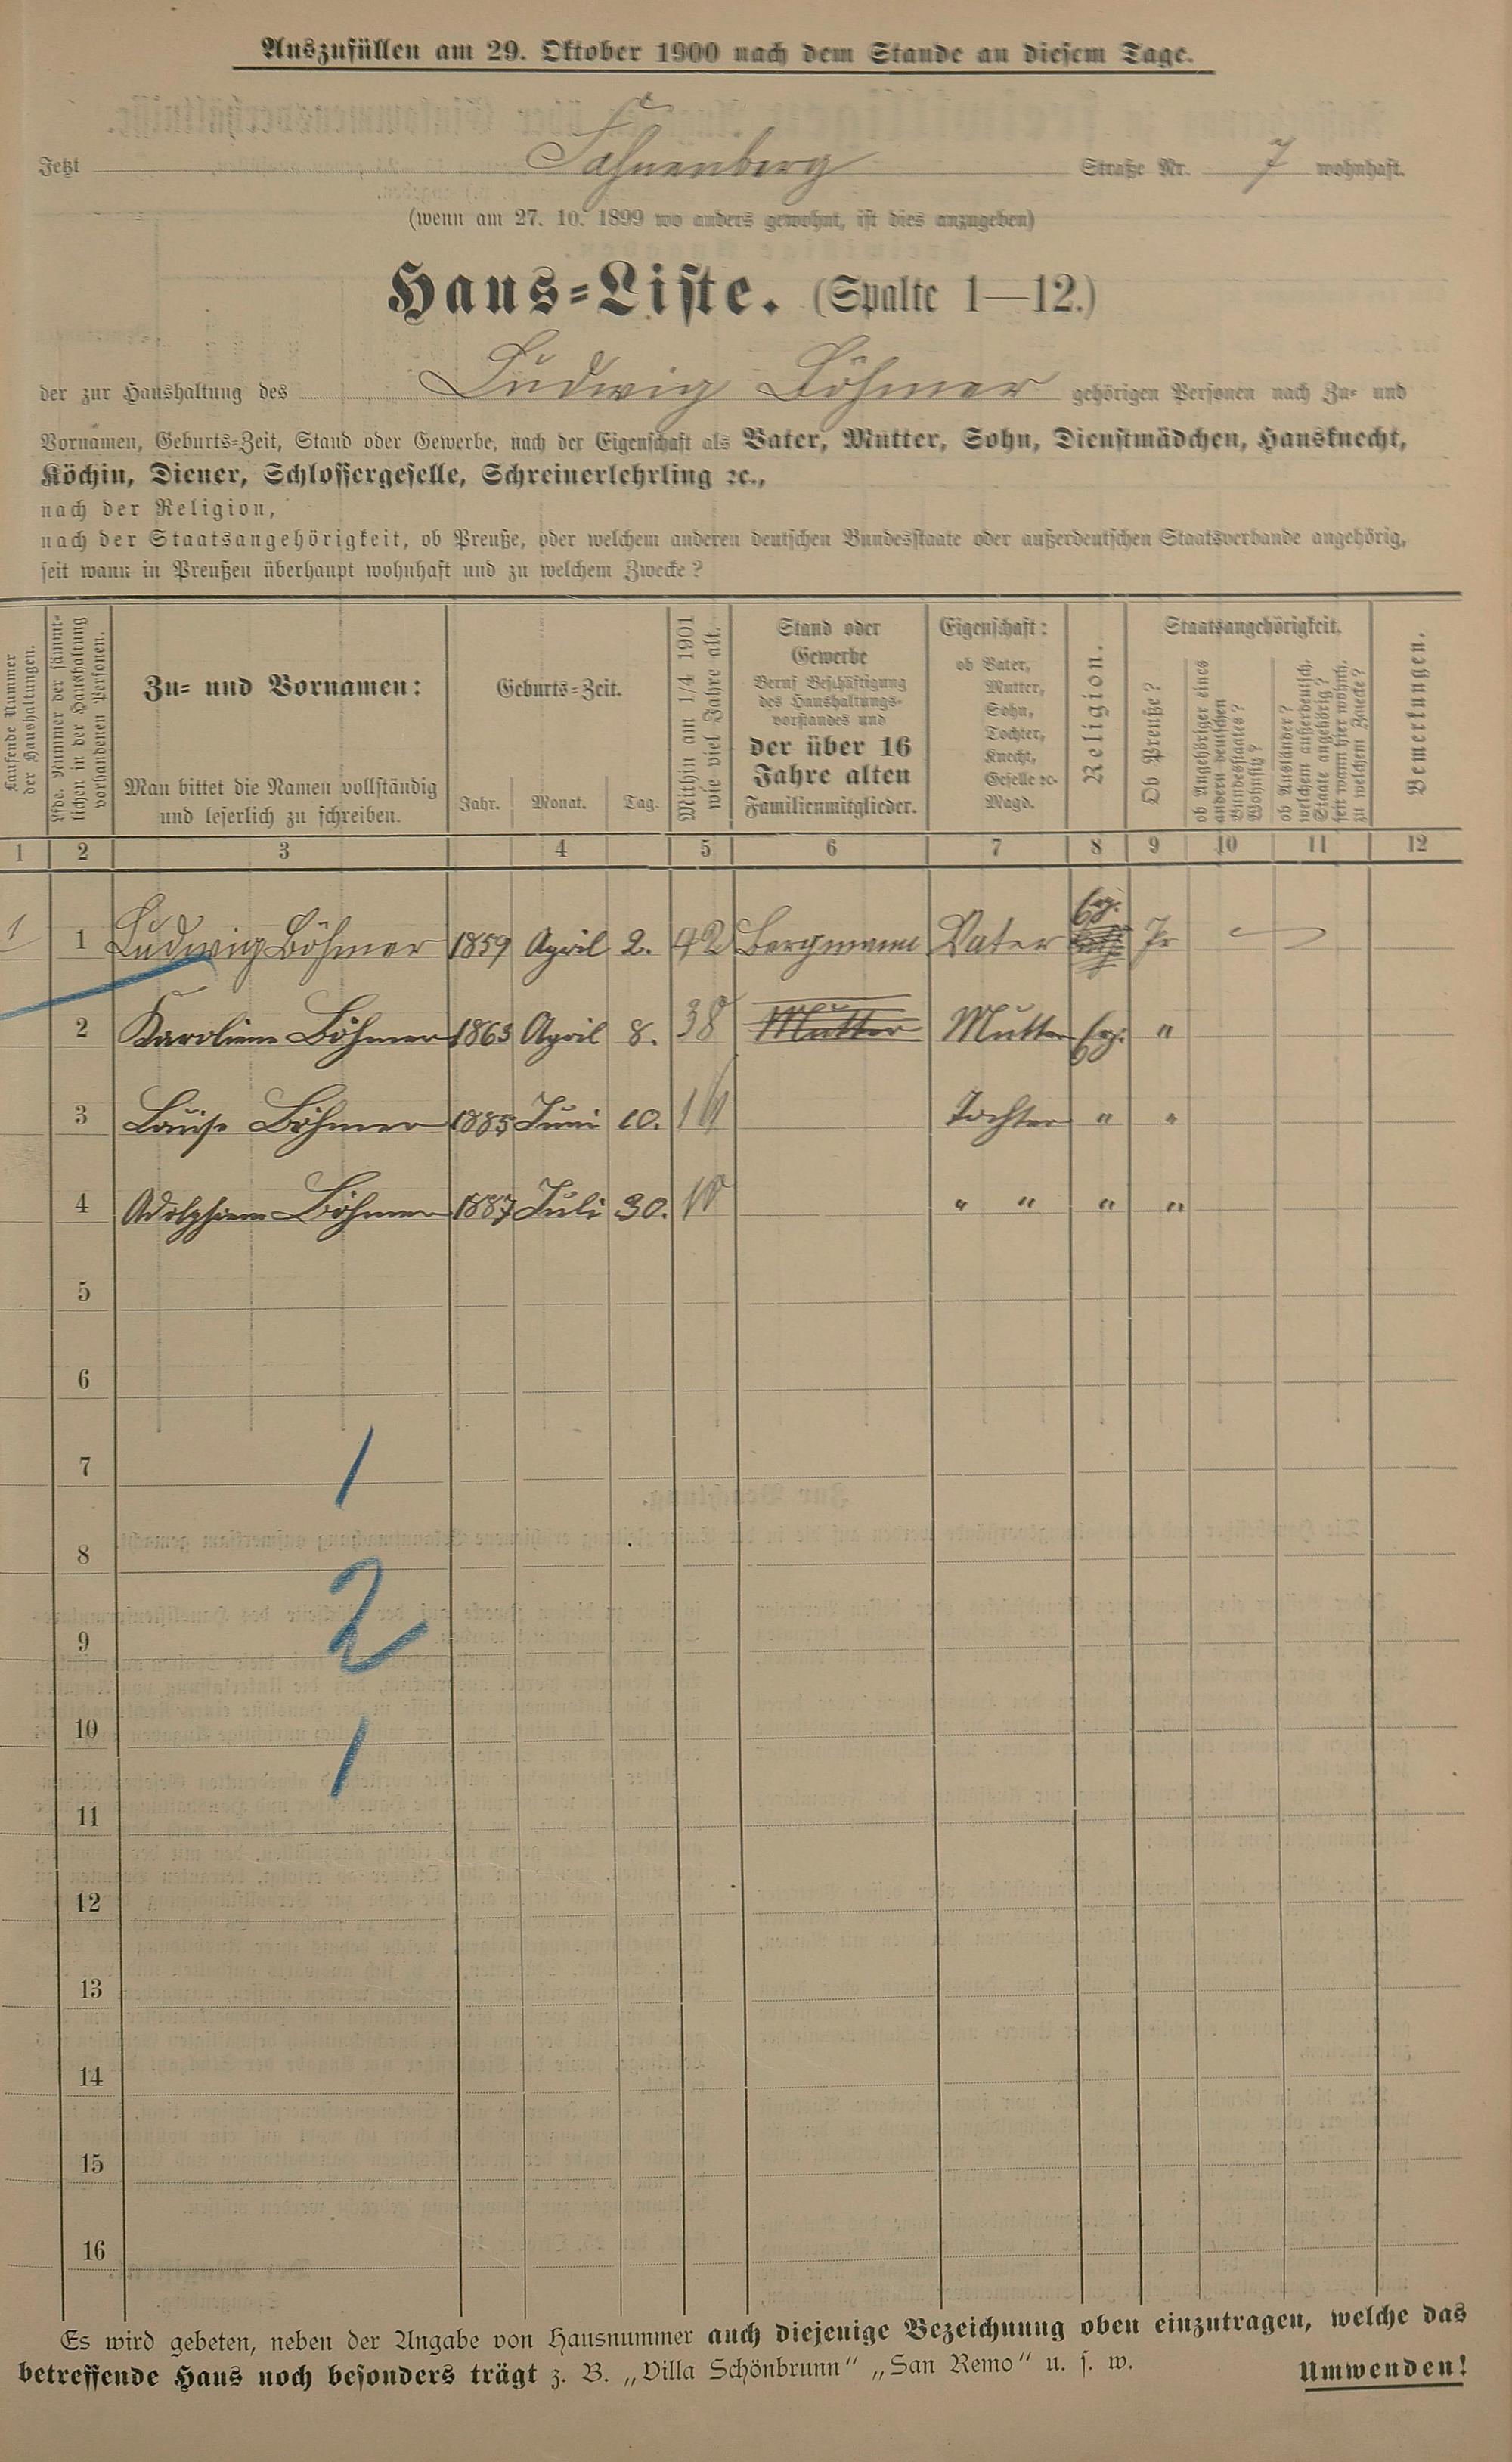 Auszufüllen am 29. Oktober 1900 nach dem Stande an diesem Tage.
Jetzt Fahnenberg Straße Nr. 7 wohnhaft.
(wenn am 27. 10. 1899 wo anders gewohnt, ist dies anzugeben)
Haus=Liste. (Spalte 1—12.)
der zur Haushaltung des Ludwig Böhmer gehörigen Personen nach Zu= und
Vornamen, Geburts=Zeit, Stand oder Gewerbe, nach der Eigenschaft als Vater, Mutter, Sohn, Dienstmädchen, Hausknecht,
Köchin, Diener, Schlossergeselle, Schreinerlehrling ꝛc.,
nach der Religion,
nach der Staatsangehörigkeit, ob Preuße, oder welchem anderen deutschen Bundesstaate oder außerdeutschen Staatsverbande angehörig,
seit wann in Preußen überhaupt wohnhaft und zu welchem Zwecke?
Laufende Nummer
der Haushaltungen.
Lfde. Nummer der sämmt=
lichen in der Haushaltung
vorhandenen Personen.
Zu= und Vornamen:
Man bittet die Namen vollständig
und leserlich zu schreiben.
Geburts=Zeit.
Jahr. Monat. Tag.
Mithin am 1/4 1901
wie viel Jahre alt.
Stand oder
Gewerbe
Beruf Beschäftigung
des Haushaltungs=
vorstandes und
der über 16
Jahre alten
Familienmitglieder.
Eigenschaft:
ob Vater,
Mutter,
Sohn,
Tochter,
Knecht,
Geselle ꝛc.
Magd.
Religion.
Staatsangehörigkeit.
Ob Preuße?
ob Angehöriger eines
andern deutschen
Bundesstaates?
Wohnsitz?
ob Ausländer?
welchem außerdeutsch.
Staate angehörig?
seit wann hier wohnh.
zu welchem Zwecke?
Bemerkungen.
1 2 3 4 5 6 7 8 9 10 11 12
1 1 Ludwig Böhmer 1859 April 2. 42 Bergmann Vater Evg. Pr
2 Karoline Böhmer 1863 April 8. 38 Mutter Mutter Evg. "
3 Louise Böhmer 1885 Juni 10. Tochter " "
4 Böhmer 1887 Juli 30. " " " "
5
6
7
1
8
2
9
10
1
11
12
13
14
15
16
Es wird gebeten, neben der Angabe von Hausnummer auch diejenige Bezeichnung oben einzutragen, welche das
betreffende Haus noch besonders trägt z. B. „Villa Schönbrunn“ „San Remo“ u. s. w.
Umwenden!